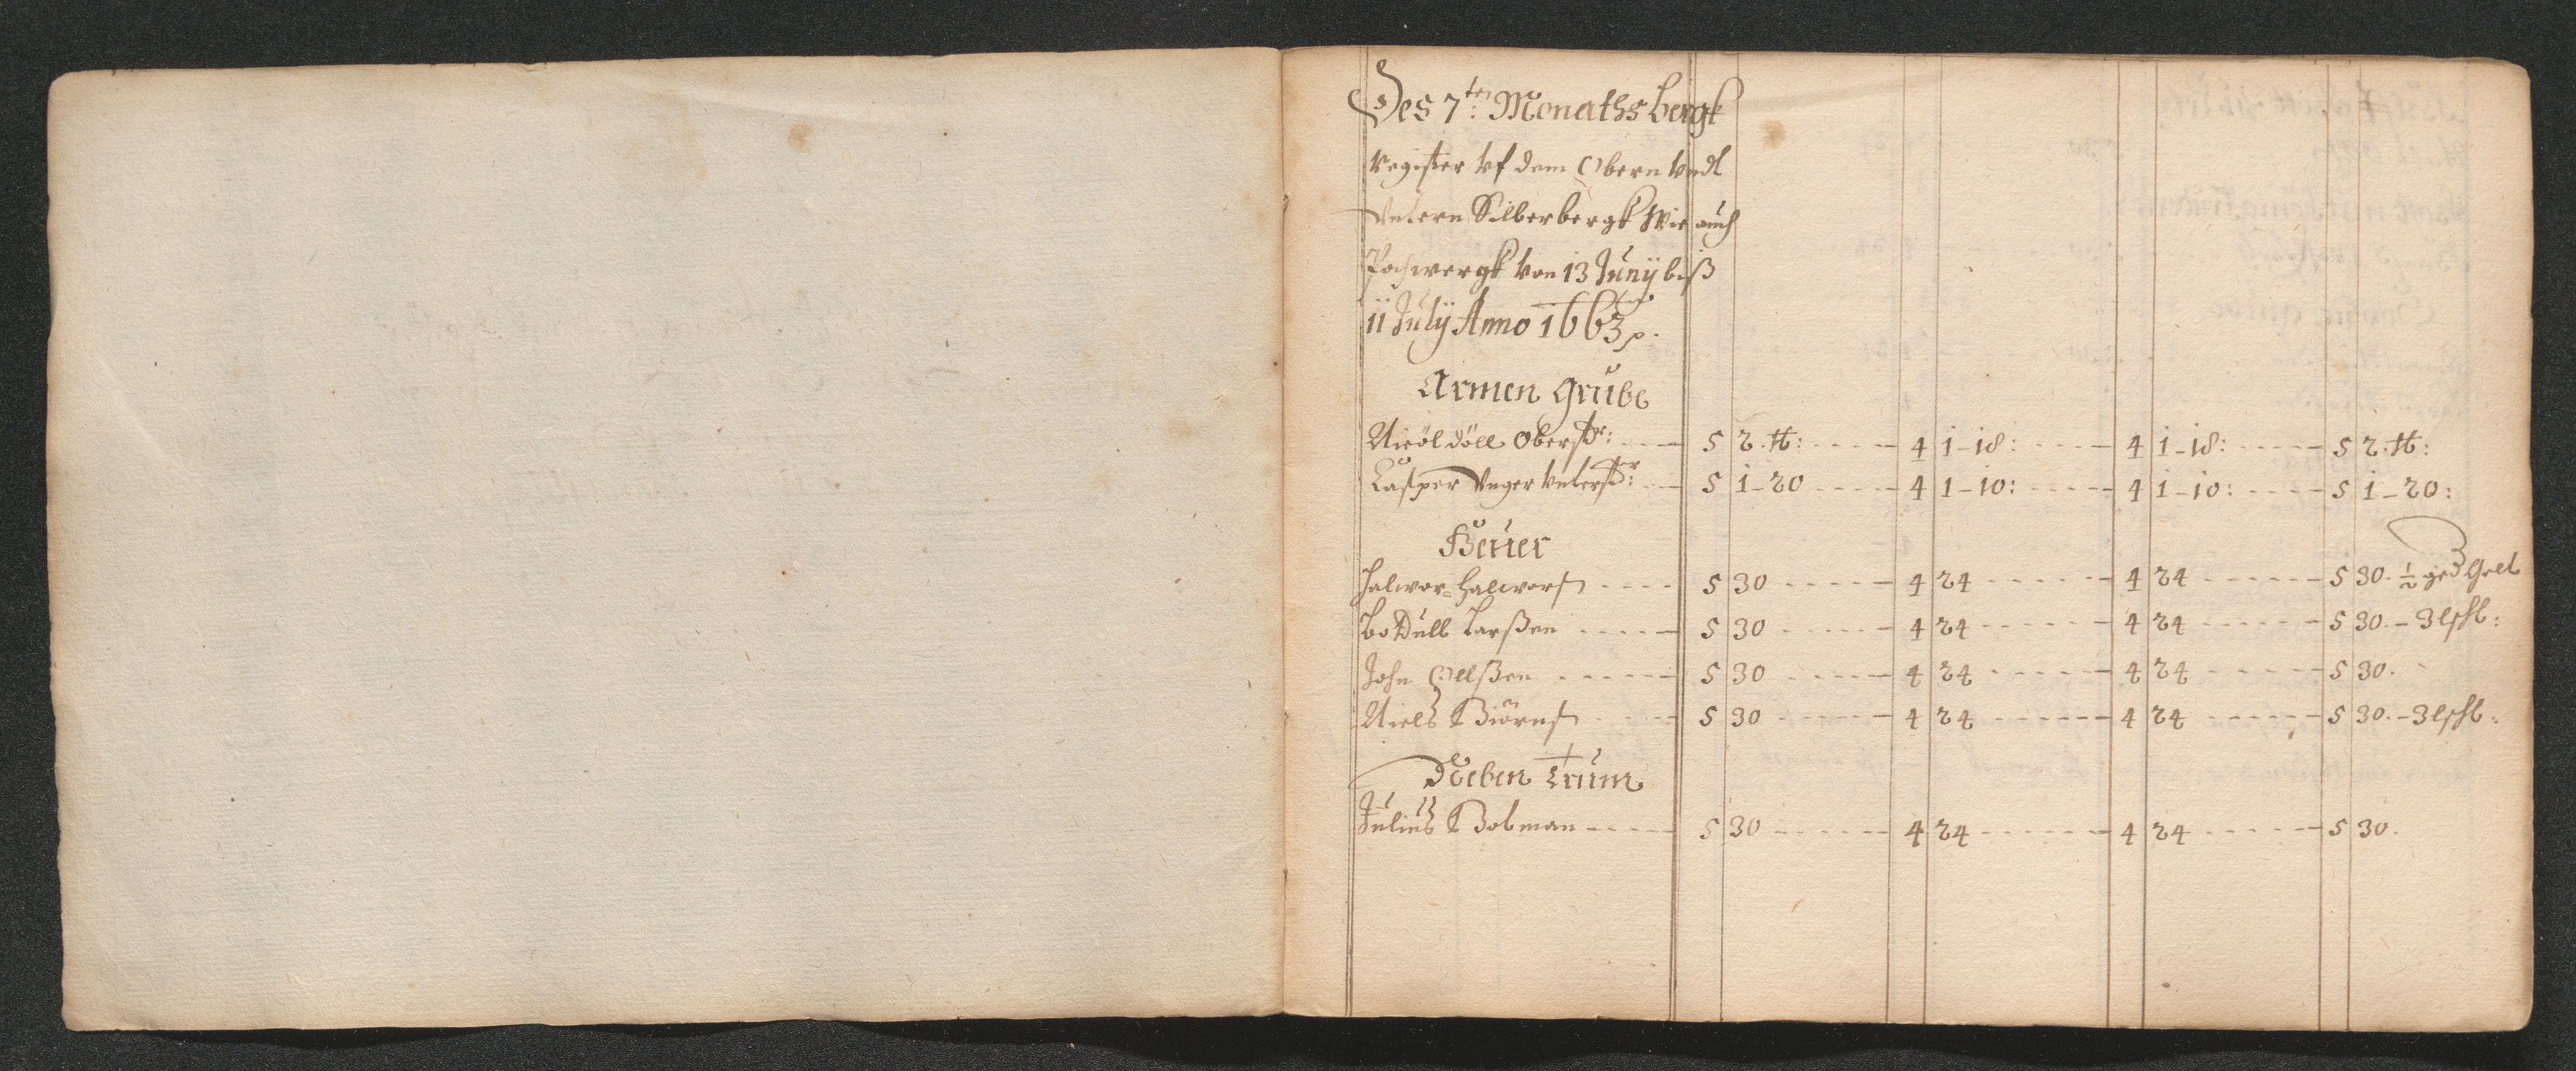 Des 7ten: Monaths bergk
Register vf dem Obern vnd
Vntern Silberbergk Wie auch
Pochwergk von 13 Junÿ biß
11 Julÿ Anno 1663
Armen Grube
Nicol Döll Oberstr: 5 2 th: 4 1-18: 4 1-18: 5 2 th:
Casper Vnger Vnterstr: 5 1-20 4 1-10: 4 1-10: 5 1-20:
Heuer
Halvor Halvors 5 30 4 24 4 24 5 30. ½ ged Gelt
Larßen 5 30 4 24 4 24 5 30.
John Ollßen 5 30 4 24 4 24 5 30.
Niels Biörns 5 30 4 24 4 24 5 30.
Neben Trum
Julius Bobman 5 30 4 24 4 24 5 30.